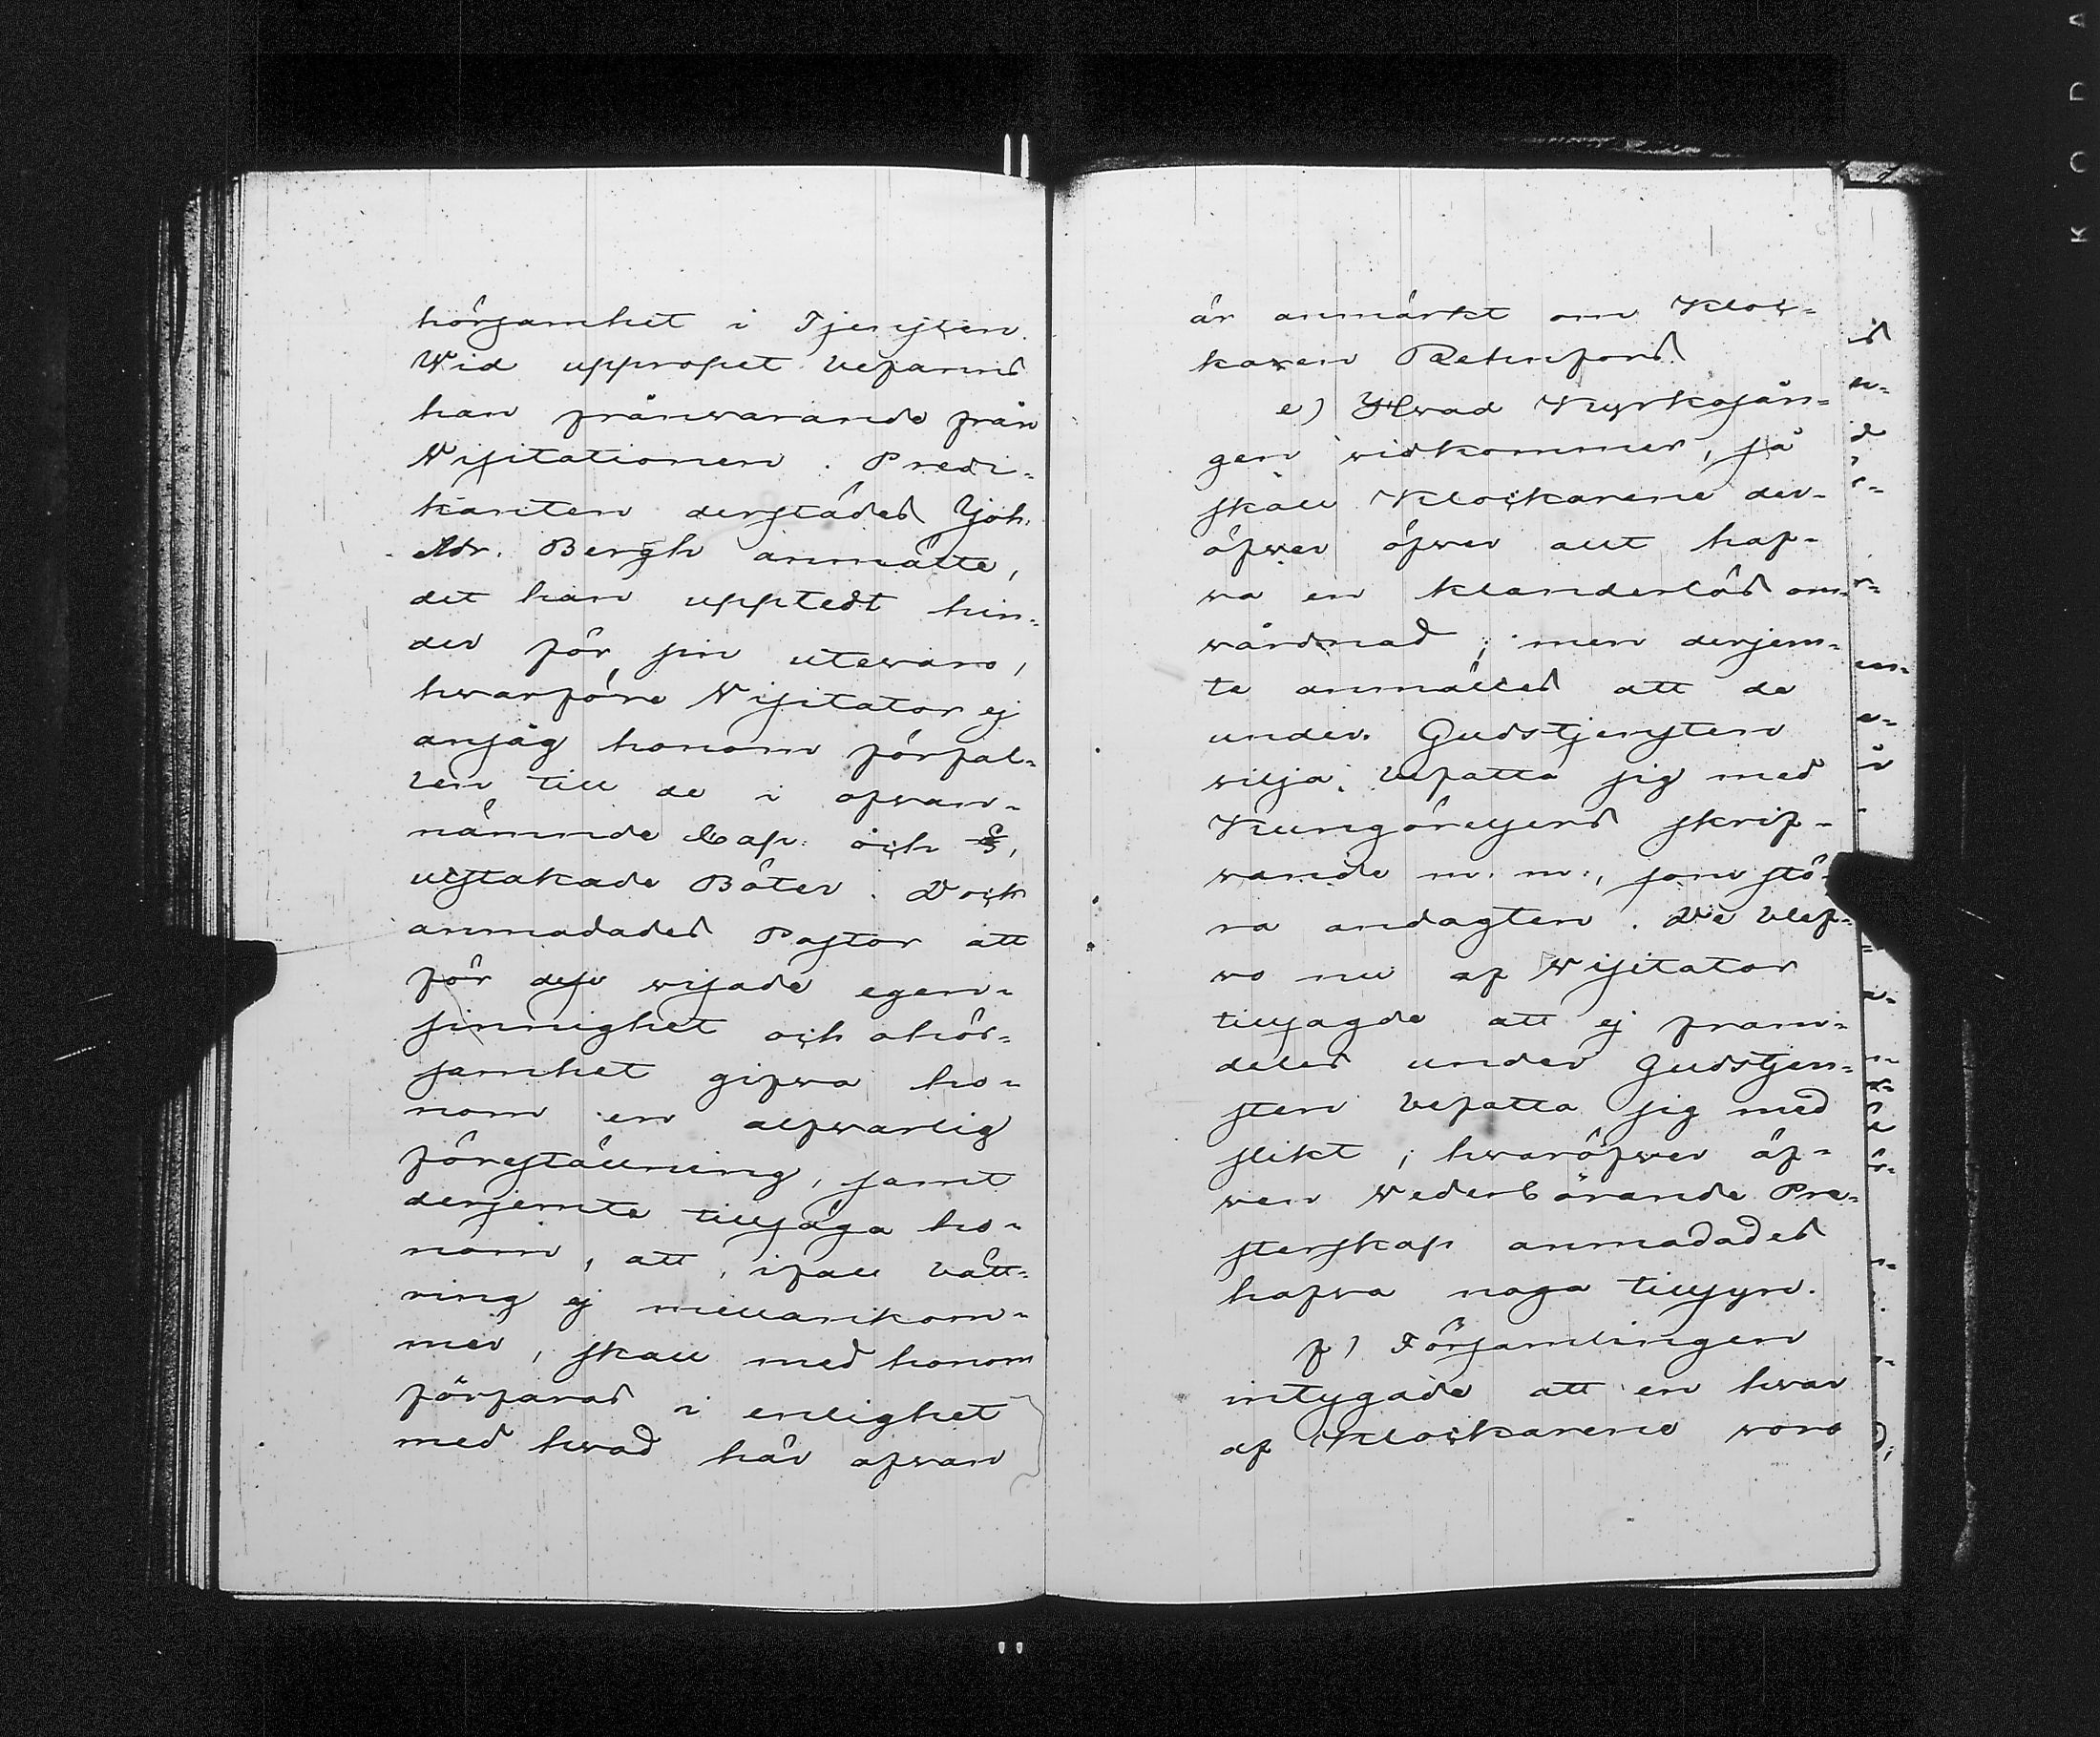 hörsamhet i Tjensten.
Wid uppropet befanns
han frånwarande från
Visitationen. Predi-
kanten derstädes Joh.
Adr. Bergh anmälte,
det han upptedt hin-
der för sin utewaro,
hwarföre Visitator ej
ansåg honom förfal-
len till de i ofwan-
nämnde Cap. och §,
utstakade Böter. Dock
anmadades Pastor att
för dess wisade egen-
sinnighet och ohör-
samhet gifwa ho-
nom en alfwarlig
föreställning, samt
derjemte tillsäga ho-
nom, att, ifall bätt-
ring ej mellankom-
mer, skall med honom
förfaras i enlighet
med hwad här ofwan
är anmärkt om Kloc-
karen Rehnfors.
e) Hwad Kyrkosån-
gen widkommer, så
skall Klockarene der-
öfwer öfwer allt haf-
wa en klanderlös om-
wårdnad; men derjem-
te anmältes att de
under Gudstjensten
wilja befatta sig med
Kungörelsers skrif-
wande m. m., som stö-
ra andagten. De blef-
wo nu af Visitator
tillsagde att ej fram-
deles under Gudstjen-
sten befatta sig med
slikt; hwaröfwer äf-
wen Wederbörande Pre-
sterskap anmadades
hafwa noga tillsyn.
f) Församlingen
intygade att en hwar
af Klockarene woro